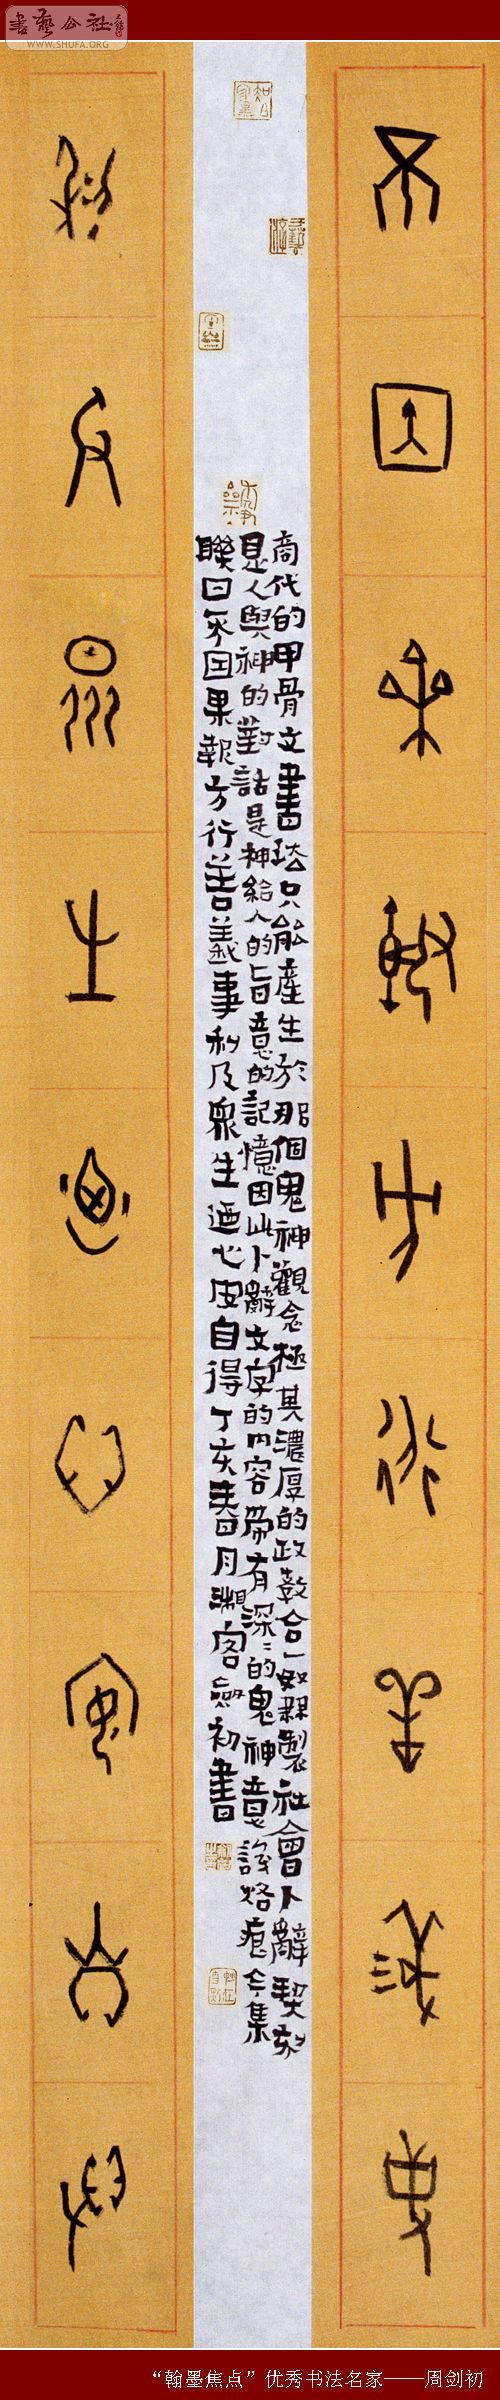 書藝公社
WWW.SHUFA.ORG
不因果報方行善義事
利及衆生迺心安自得
商代的甲骨文書法只能產生於那個鬼神觀念極其濃厚的政教合一奴隸製社會卜辭契刻
是人與神的對話是神給人的旨意的記憶因此卜辭文字的内容帶有深〻的鬼神意識烙痕今集
聯曰不因果報方行善義事利及衆生迺心安自得丁亥春月湘客劍初書
“翰墨焦点”优秀书法名家——周剑初